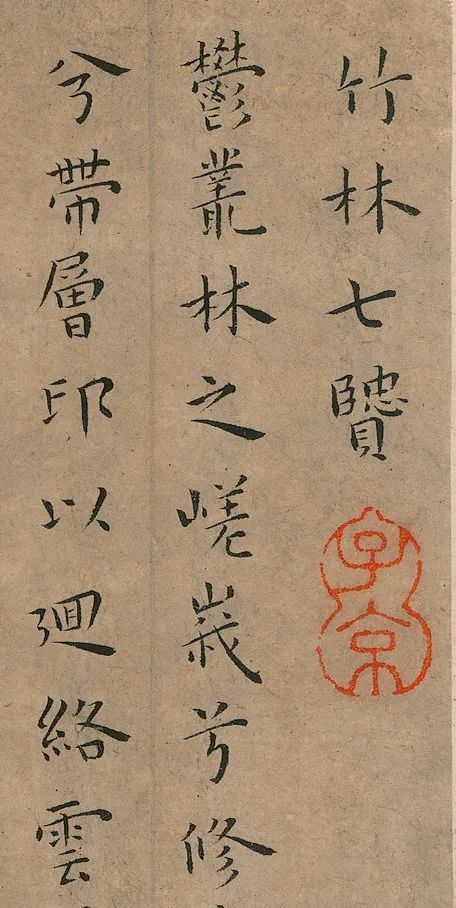 竹林七賢
鬱叢林之嵯峩兮修
兮帶層邱以迴絡雲
子京